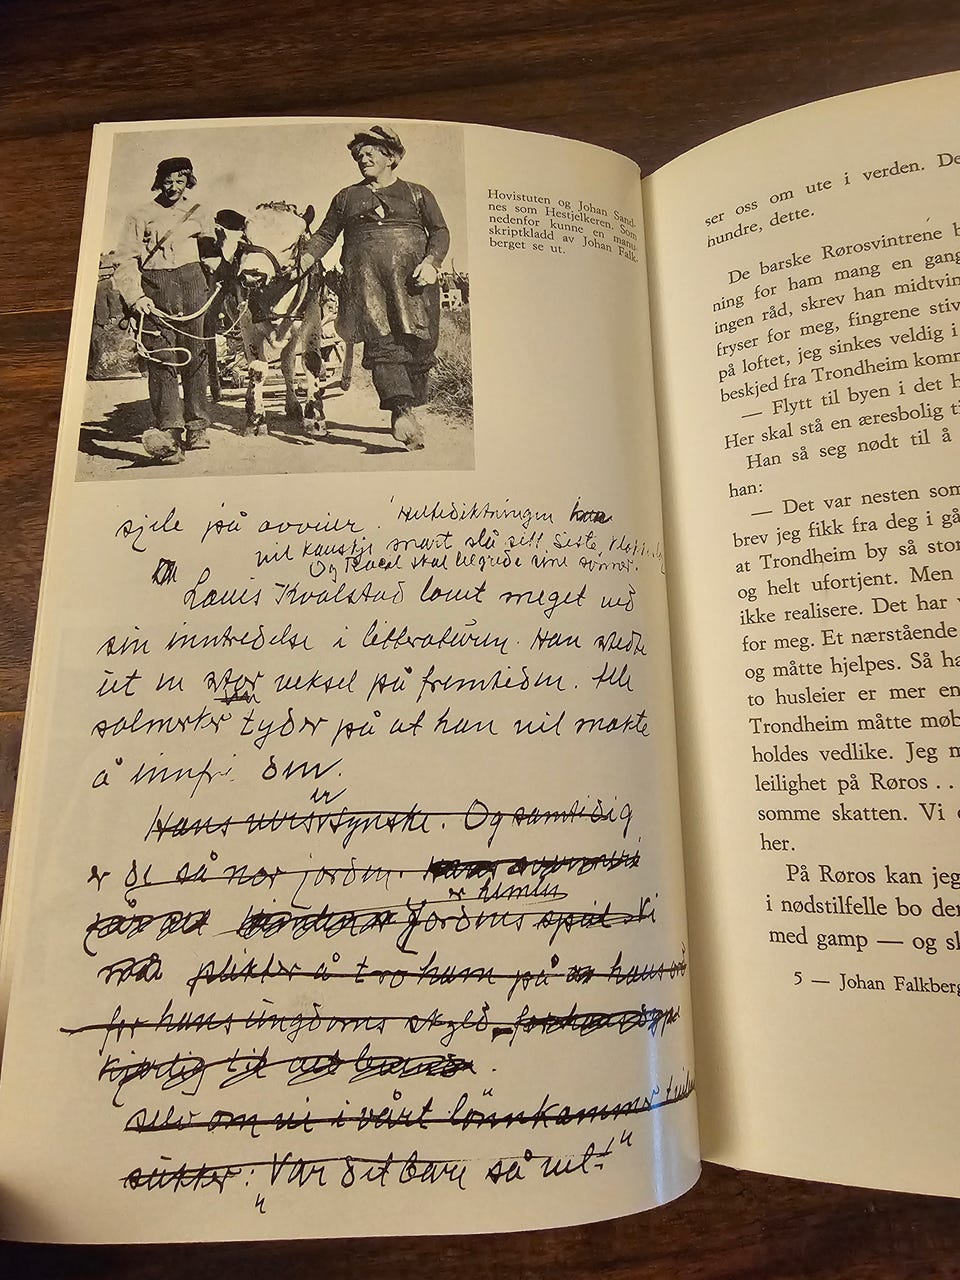 Hovistuten og Johan Sand-
nes som Hestjelkeren. Som
nedenfor kunne en manu-
skriptkladd av Johan Falk-
berget se ut.
sjele på avveier. Heltediktningen
vil kanskje snart slå sitt siste
Og Rakel skal begrede sine sønner.
Louis Kvalstad lovet meget ved
sin inntredelse i litteraturen. Han stedte
ut en stor veksel på fremtiden. Alle
solmerker tyder på at han vil makte
å innfri den.
Hans vers er synske. Og samtidig
er de så nær jorden.
er himlen
jordens speil Vi
plikter å tro ham på hans ord
for hans ungdoms skyld
selv om vi i vårt lønnkammer
sukker: "Var det bare så vel!"
ser oss om ute i verden. De
hundre, dette.
De barske Rørosvintrene b
ning for ham mang en gang
ingen råd, skrev han midtvin
fryser for meg, fingrene stiv
på loftet, jeg sinkes veldig i
beskjed fra Trondheim komm
— Flytt til byen i det h
Her skal stå en æresbolig ti
Han så seg nødt til å
han:
— Det var nesten som
brev jeg fikk fra deg i gå
at Trondheim by så stor
og helt ufortjent. Men
ikke realisere. Det har v
for meg. Et nærstående
og måtte hjelpes. Så ha
to husleier er mer en
Trondheim måtte møb
holdes vedlike. Jeg m
leilighet på Røros . .
somme skatten. Vi e
her.
På Røros kan jeg
i nødstilfelle bo der
med gamp — og sl
5 — Johan Falkberg